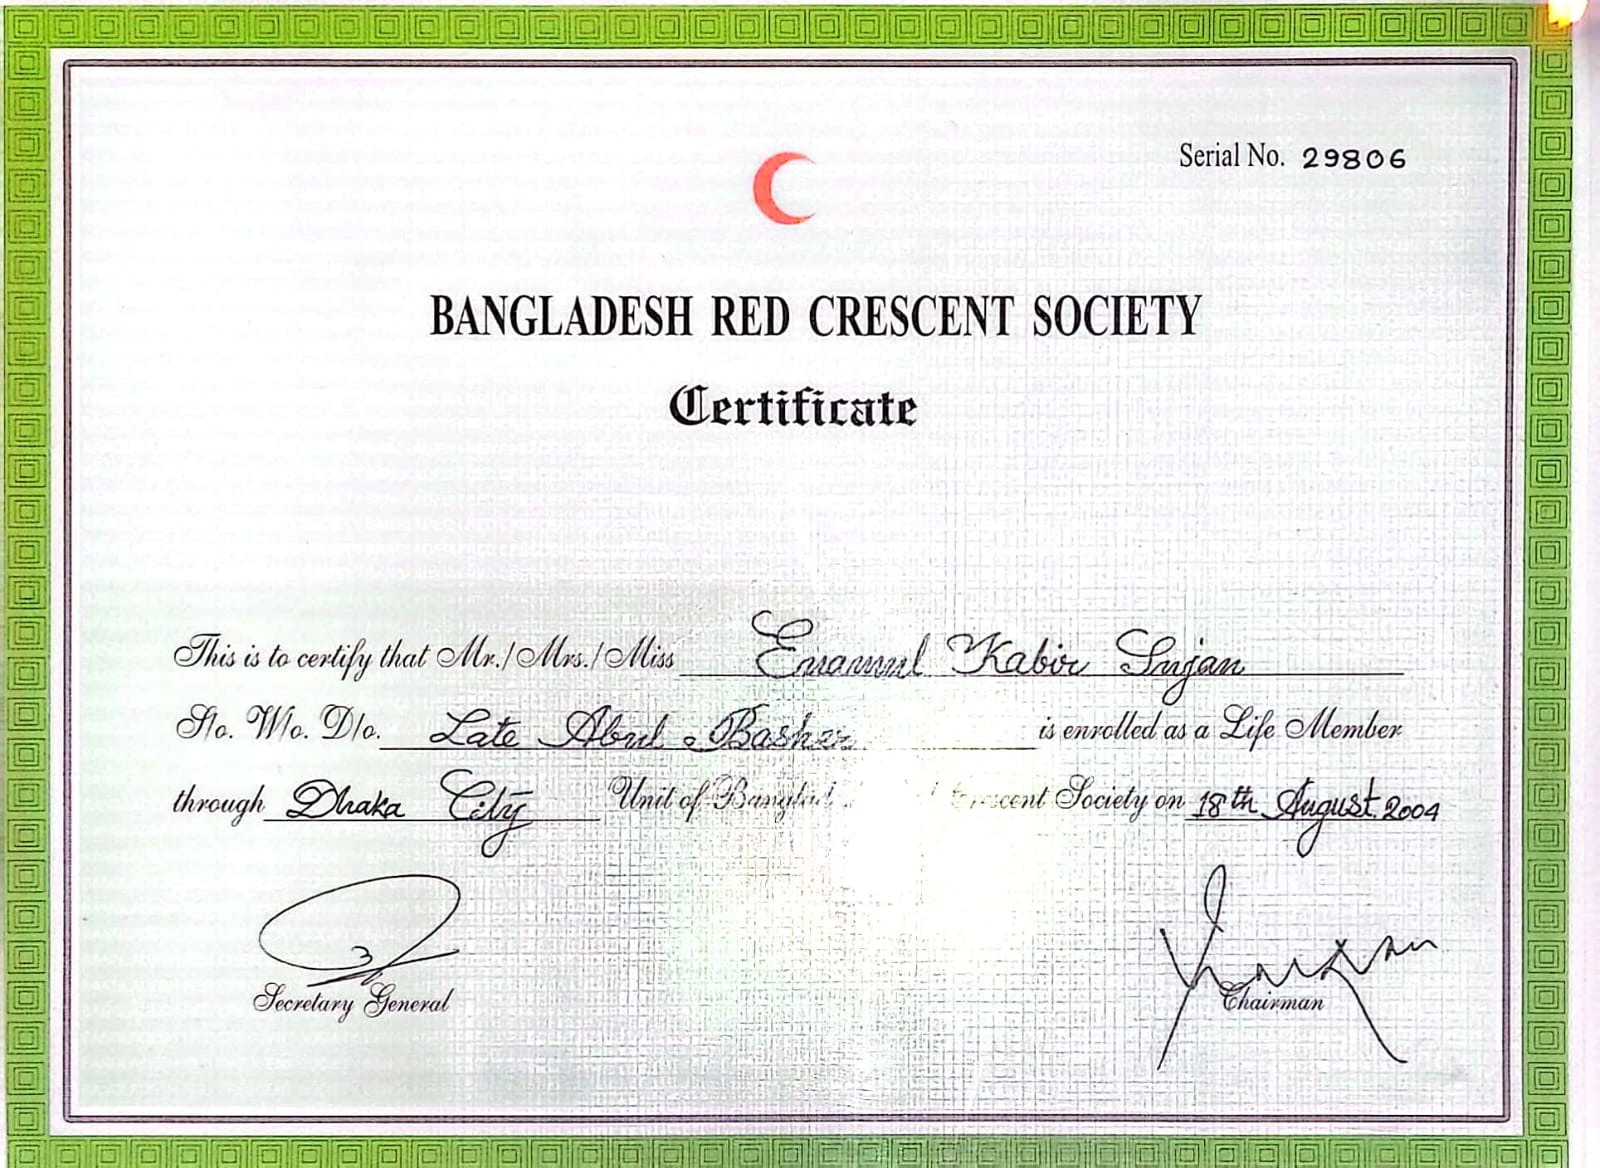 Serial No. 29806
BANGLADESH RED CRESCENT SOCIETY
Certificate
This is to certify that Mr./Mrs./Miss Emamul Kabir Sujan
S/o. W/o. D/o. Late Abul Basher is enrolled as a Life Member
through Dhaka City Unit of Society on 18th August 2004
3
Secretary General
Chairman